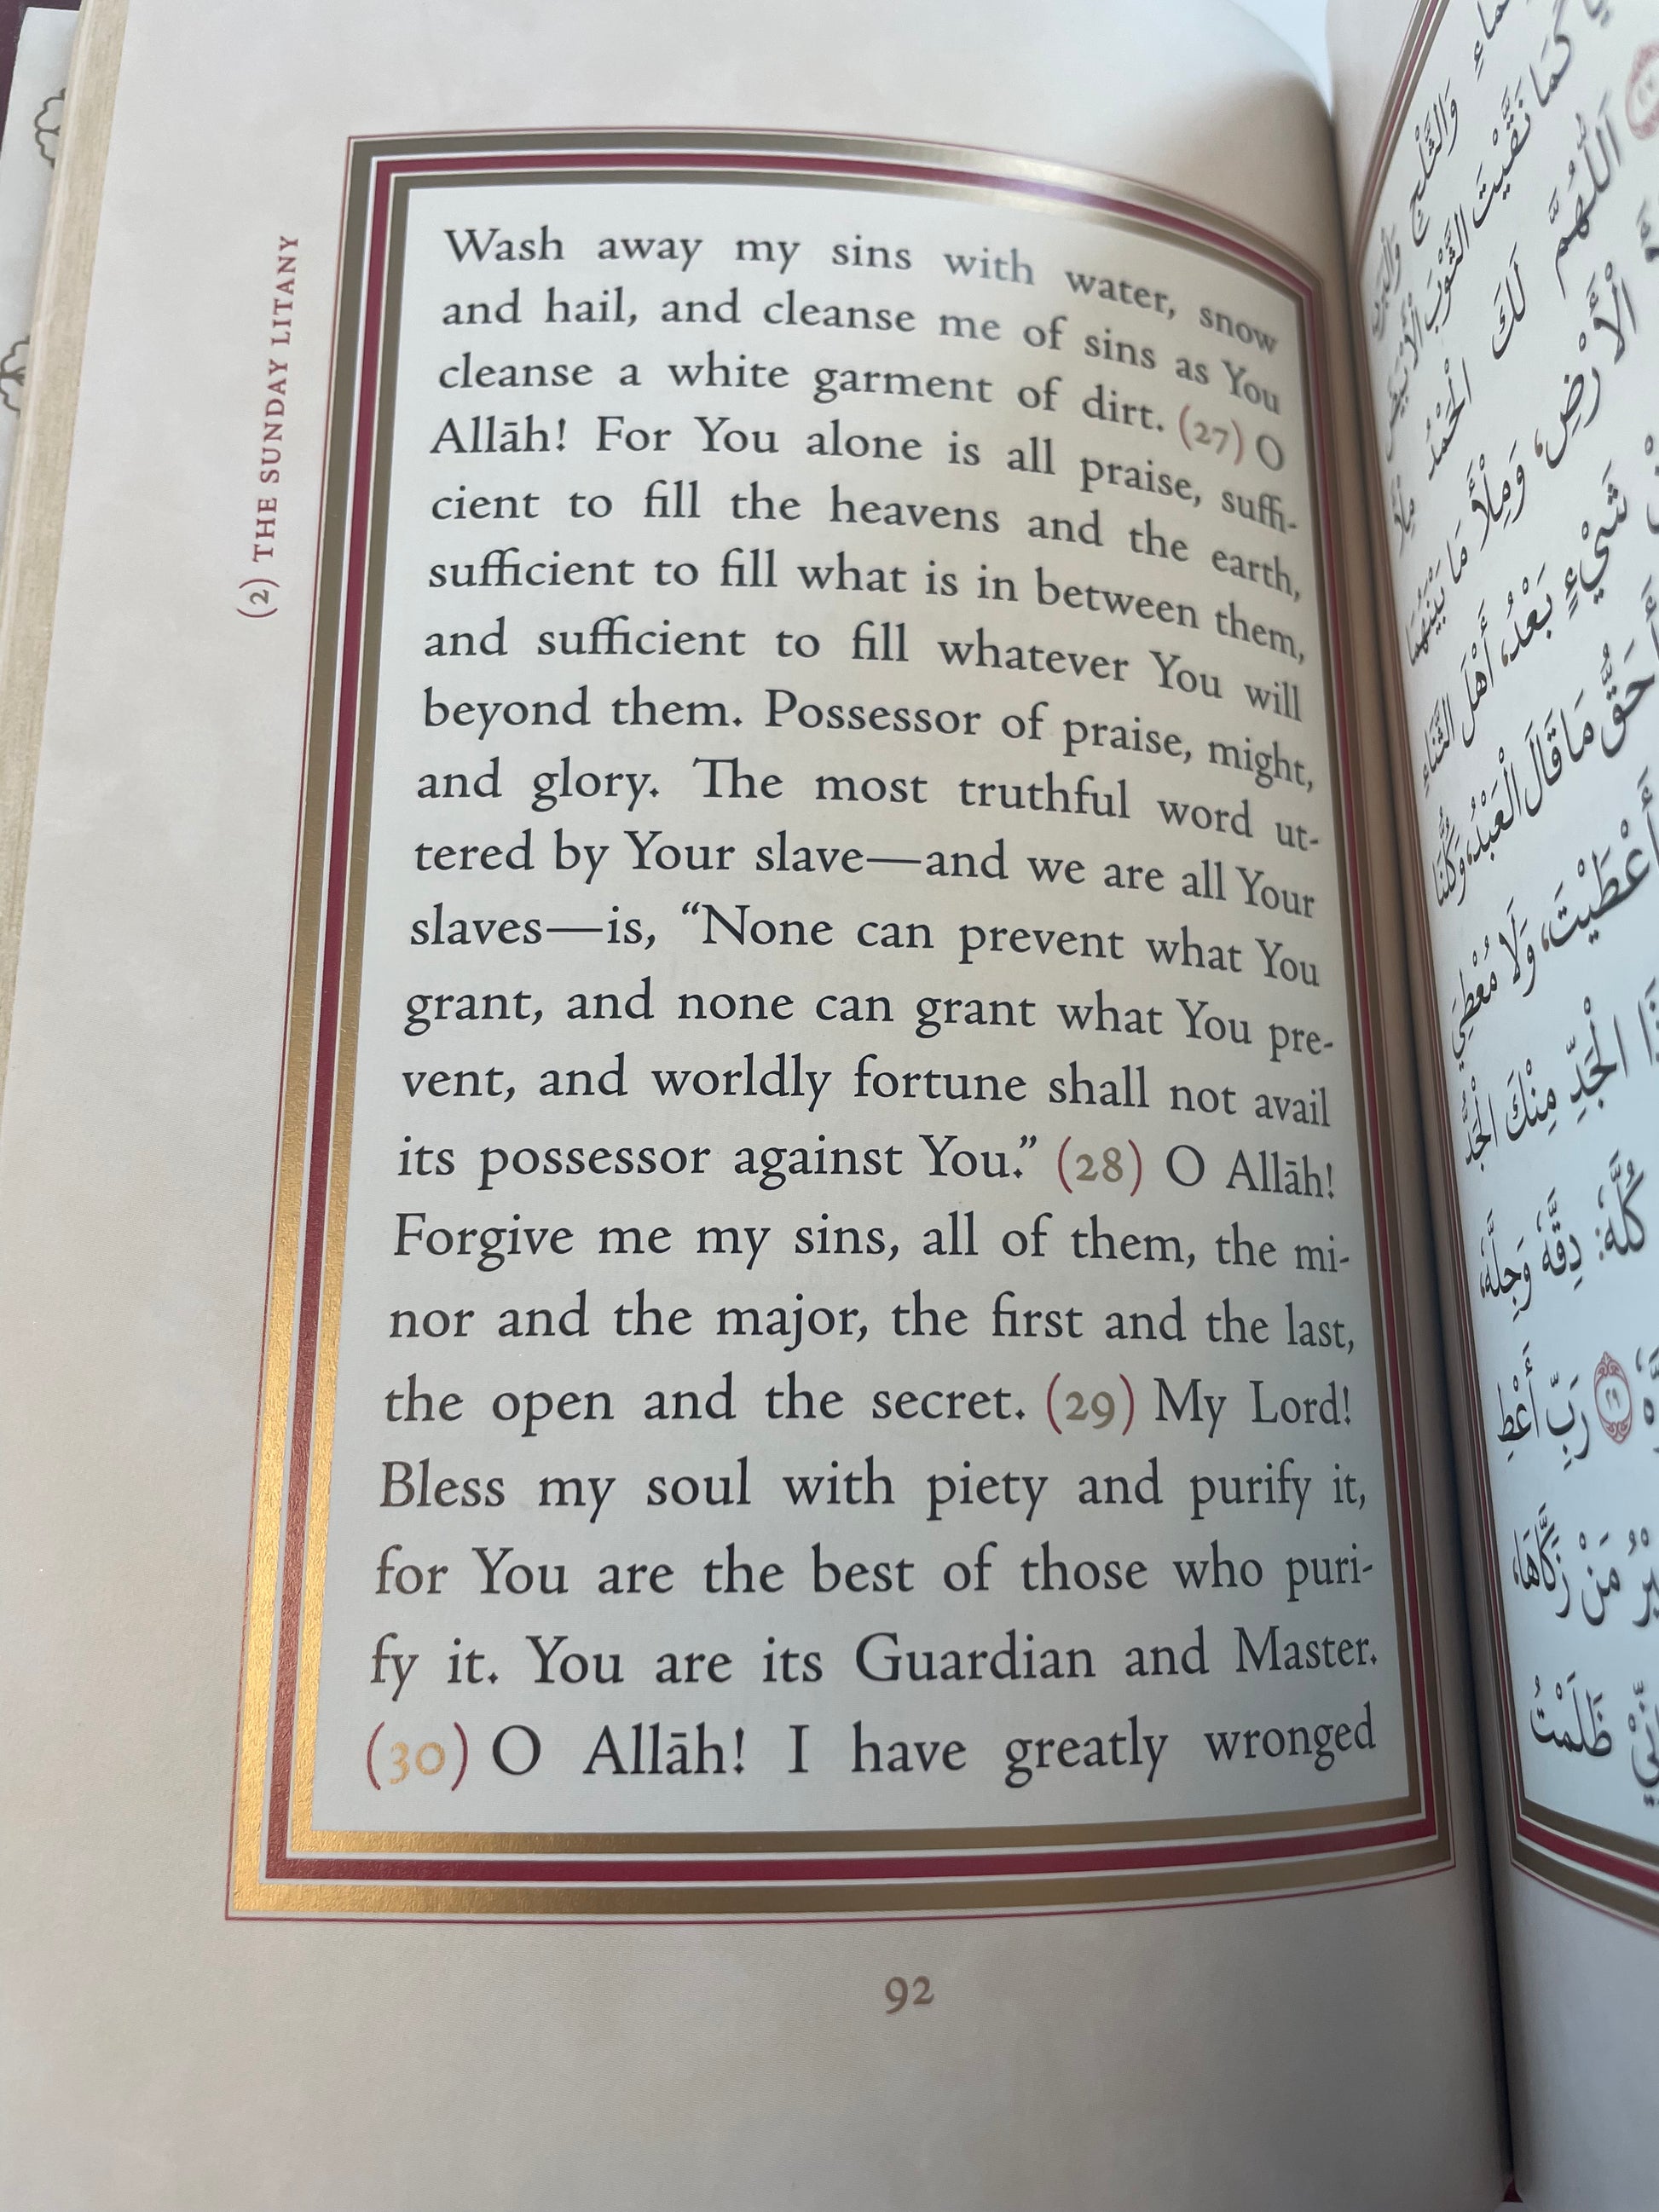 (2) THE SUNDAY LITANY
Wash away my sins with water, snow
and hail, and cleanse me of sins as You
cleanse a white garment of dirt. (27) O
Allāh! For You alone is all praise, suffi-
cient to fill the heavens and the earth,
sufficient to fill what is in between them,
and sufficient to fill whatever You will
beyond them. Possessor of praise, might,
and glory. The most truthful word ut-
tered by Your slave—and we are all Your
slaves—is, “None can prevent what You
grant, and none can grant what You pre-
vent, and worldly fortune shall not avail
its possessor against You.” (28) O Allāh!
Forgive me my sins, all of them, the mi-
nor and the major, the first and the last,
the open and the secret. (29) My Lord!
Bless my soul with piety and purify it,
for You are the best of those who puri-
fy it. You are its Guardian and Master.
(30) O Allāh! I have greatly wronged
92
وَالثَّلْجِ
كَمَا نَقَّيْتَ الثَّوْبَ
اَللّٰهُمَّ لَكَ الْحَمْدُ
الْأَرْضِ، وَمِلْأَ مَا بَيْنَهُمَا
شَيْءٍ بَعْدُ، أَهْلَ الثَّنَاءِ
أَحَقُّ مَا قَالَ الْعَبْدُ، وَكُلُّنَا
أَعْطَيْتَ، وَلَا مُعْطِيَ
الْجَدِّ مِنْكَ الْجَدُّ
كُلَّهُ: دِقَّهُ وَجِلَّهُ،
٢٩ رَبِّ أَعْطِ
مَنْ زَكَّاهَا،
ظَلَمْتُ